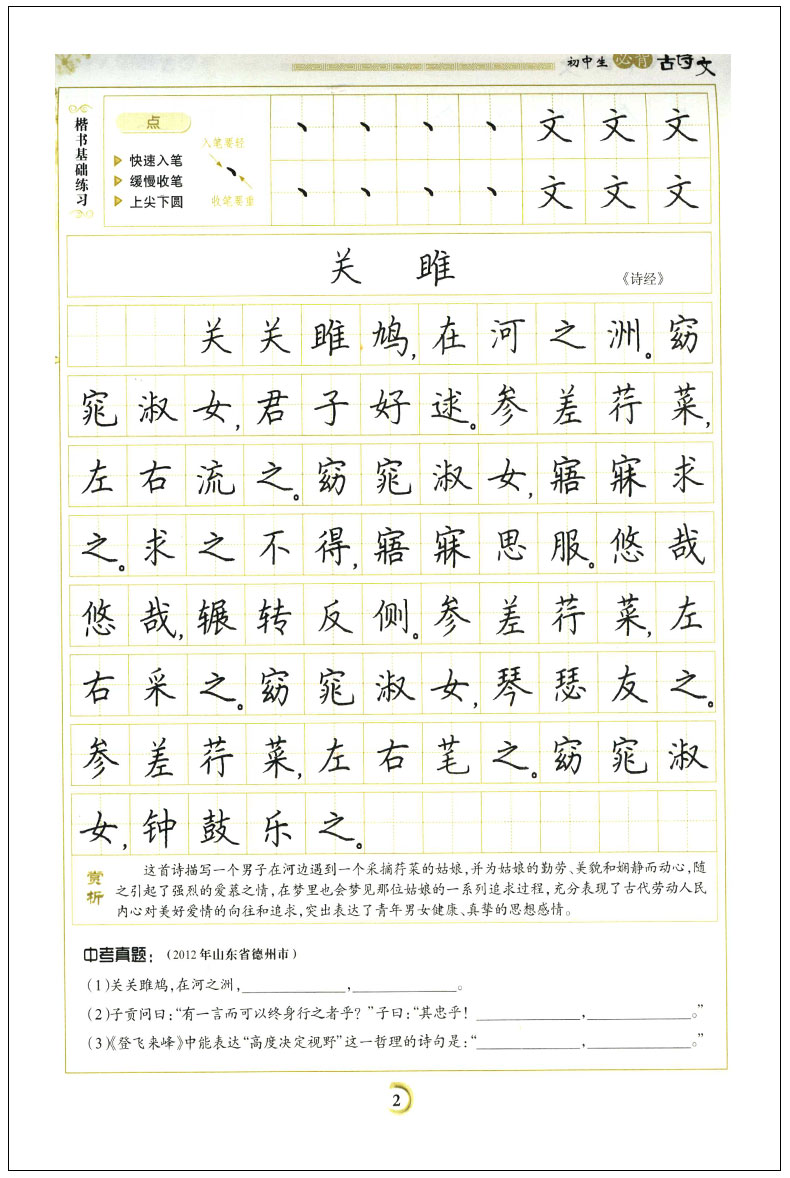 初中生 必背 古诗文
楷书基础练习
点
快速入笔
缓慢收笔
上尖下圆
入笔要轻
收笔要重
丶 丶 丶 丶 文 文 文
丶 丶 丶 丶 文 文 文
关 雎
《诗经》
关关雎鸠,在河之洲。窈
窕淑女,君子好逑。参差荇菜,
左右流之。窈窕淑女,寤寐求
之。求之不得,寤寐思服。悠哉
悠哉,辗转反侧。参差荇菜,左
右采之。窈窕淑女,琴瑟友之。
参差荇菜,左右芼之。窈窕淑
女,钟鼓乐之。
赏析
这首诗描写一个男子在河边遇到一个采摘荇菜的姑娘,并为姑娘的勤劳、美貌和娴静而动心,随
之引起了强烈的爱慕之情,在梦里也会梦见那位姑娘的一系列追求过程,充分表现了古代劳动人民
内心对美好爱情的向往和追求,突出表达了青年男女健康、真挚的思想感情。
中考真题:(2012年山东省德州市)
(1)关关雎鸠,在河之洲,____________,____________。
(2)子贡问曰:“有一言而可以终身行之者乎?”子曰:“其忠乎! ____________,____________。”
(3)《登飞来峰》中能表达“高度决定视野”这一哲理的诗句是:“____________,____________。”
2